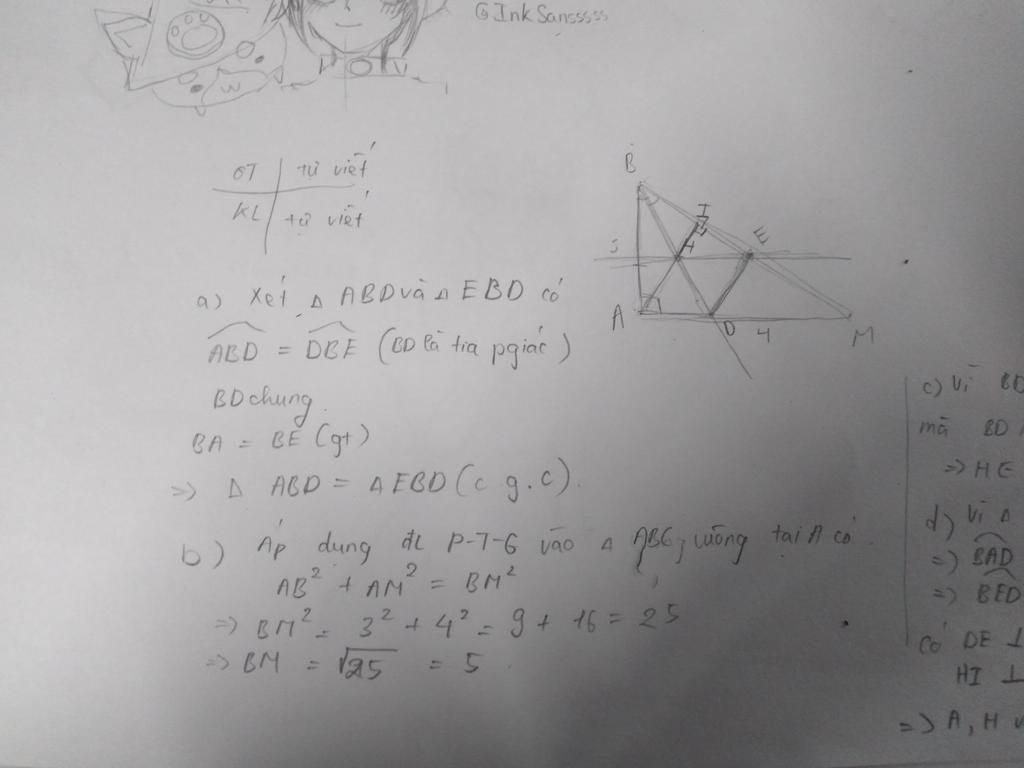 @InkSansssss
GT tự viết
KL tự viết
B
I
H
E
A
D
4
M
a) Xét Δ ABD và Δ EBD có
ABD = DBE (BD là tia pgiác)
BD chung
BA = BE (gt)
=> Δ ABD = Δ EBD (c.g.c).
b) Áp dụng đL P-T-G vào Δ ABC, vuông tại A có
AB² + AM² = BM²
=> BM² = 3² + 4² = 9 + 16 = 25
=> BM = √25 = 5.
c) Vì BD
mà BD
=> HE
d) Vì Δ
=) BAD
=) BED
Có DE ⊥
HI ⊥
=> A, H